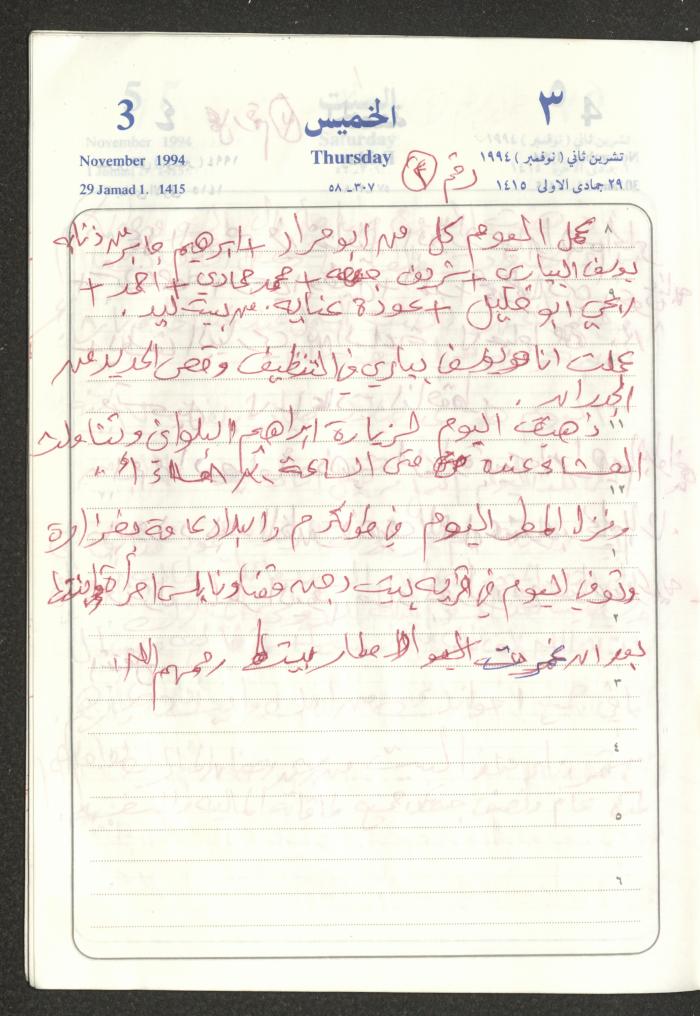 3 الخميس ٣
November 1994 Thursday تشرين ثاني ( نوفمبر ) ١٩٩٤
29 Jamad 1. 1415 ٣٠٧-٥٨ ٢٩ جمادى الاولى ١٤١٥
رقم
٨ عمل اليوم كل من ابو مراد + ابرهيم جابر من ذنابه
يوسف البياري + شريف + محمد حمادي + احمد +
ابو خليل + عودة عنايه. من بيت ليد.
عملت انا ويوسف بياري في التنظيف وقص الحديد عن
الجدران.
١١ ذهبت اليوم لزيارة ابراهيم البلواني وتناولت
العشاء عنده حتى الساعة
١٢
ونزل المطر اليوم في طولكرم والبلاد عامة بغزارة
١
وتوفي اليوم في قريه بيت دجن قضاء نابلس امرأة وابنتها
٢
بعد ان غمرت الامطار بيتها رحمهم الله
٣
٤
٥
٦